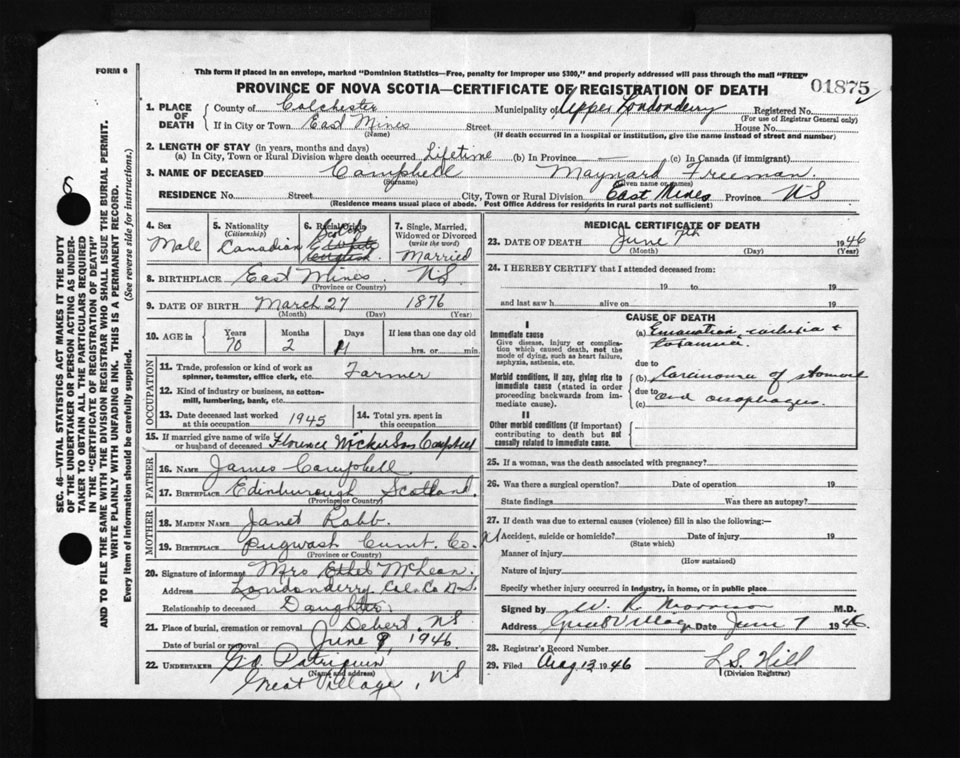 FORM 6
This form if placed in an envelope, marked "Dominion Statistics—Free, penalty for improper use $300," and properly addressed will pass through the mail "FREE"
PROVINCE OF NOVA SCOTIA—CERTIFICATE OF REGISTRATION OF DEATH
01875
1. PLACE OF DEATH County of Colchester Municipality of Upper Londonderry Registered No.
(For use of Registrar General only)
If in City or Town East Mines Street House No.
(Name) (If death occurred in a hospital or institution, give the name instead of street and number)
2. LENGTH OF STAY (in years, months and days)
(a) In City, Town or Rural Division where death occurred Lifetime (b) In Province — (c) In Canada (if immigrant)
3. NAME OF DECEASED Campbell Maynard Freeman
(Surname) (Given name or names)
RESIDENCE No. Street City, Town or Rural Division East Mines Province NS
(Residence means usual place of abode. Post Office Address for residents in rural parts not sufficient)
4. Sex Male
5. Nationality (Citizenship) Canadian
6. Racial Origin Scotch
7. Single, Married, Widowed or Divorced (write the word) Married
8. BIRTHPLACE East Mines NS
(Province or Country)
9. DATE OF BIRTH March 27 1876
(Month) (Day) (Year)
10. AGE in Years Months Days If less than one day old
70 2 11 hrs. or min.
OCCUPATION
11. Trade, profession or kind of work as spinner, teamster, office clerk, etc. Farmer
12. Kind of industry or business, as cotton-mill, lumbering, bank, etc.
13. Date deceased last worked at this occupation 1945
14. Total yrs. spent in this occupation
15. If married give name of wife or husband of deceased Florence Nickerson Campbell
FATHER
16. NAME James Campbell
17. BIRTHPLACE Edinburough Scotland
(Province or Country)
MOTHER
18. MAIDEN NAME Janet Robb
19. BIRTHPLACE Pugwash Cumt. Co.
(Province or Country)
20. Signature of informant Mrs Ethel McLean
Address Londonderry Col. Co N.S.
Relationship to deceased Daughter
21. Place of burial, cremation or removal Debert, NS
Date of burial or removal June 9, 1946
22. UNDERTAKER G.D. Patriquin
(Name and address)
Great Village, NS
MEDICAL CERTIFICATE OF DEATH
23. DATE OF DEATH June 7th 1946
(Month) (Day) (Year)
24. I HEREBY CERTIFY that I attended deceased from:
19 to 19
and last saw h alive on 19
CAUSE OF DEATH
I
Immediate cause
Give disease, injury or complication which caused death, not the mode of dying, such as heart failure, asphyxia, asthenia, etc.
(a) cachexia &
due to
Morbid conditions, if any, giving rise to immediate cause (stated in order proceeding backwards from immediate cause).
(b) Carcinoma of stomach
due to
(c) and oesophagus
II
Other morbid conditions (if important) contributing to death but not causally related to immediate cause.
25. If a woman, was the death associated with pregnancy?
26. Was there a surgical operation? Date of operation 19
State findings Was there an autopsy?
27. If death was due to external causes (violence) fill in also the following:—
Accident, suicide or homicide? Date of injury 19
(State which)
Manner of injury
(How sustained)
Nature of injury
Specify whether injury occurred in industry, in home, or in public place
Signed by W. R. Morrison M.D.
Address Great Village Date June 7 1946
28. Registrar's Record Number
29. Filed Aug 13 1946 L S. Hill
(Division Registrar)
SEC. 46—VITAL STATISTICS ACT MAKES IT THE DUTY
OF THE UNDERTAKER OR PERSON ACTING AS UNDER-
TAKER TO OBTAIN ALL THE PARTICULARS REQUIRED
IN THE "CERTIFICATE OF REGISTRATION OF DEATH"
AND TO FILE THE SAME WITH THE DIVISION REGISTRAR WHO SHALL ISSUE THE BURIAL PERMIT.
WRITE PLAINLY WITH UNFADING INK. THIS IS A PERMANENT RECORD.
Every item of information should be carefully supplied. (See reverse side for instructions.)